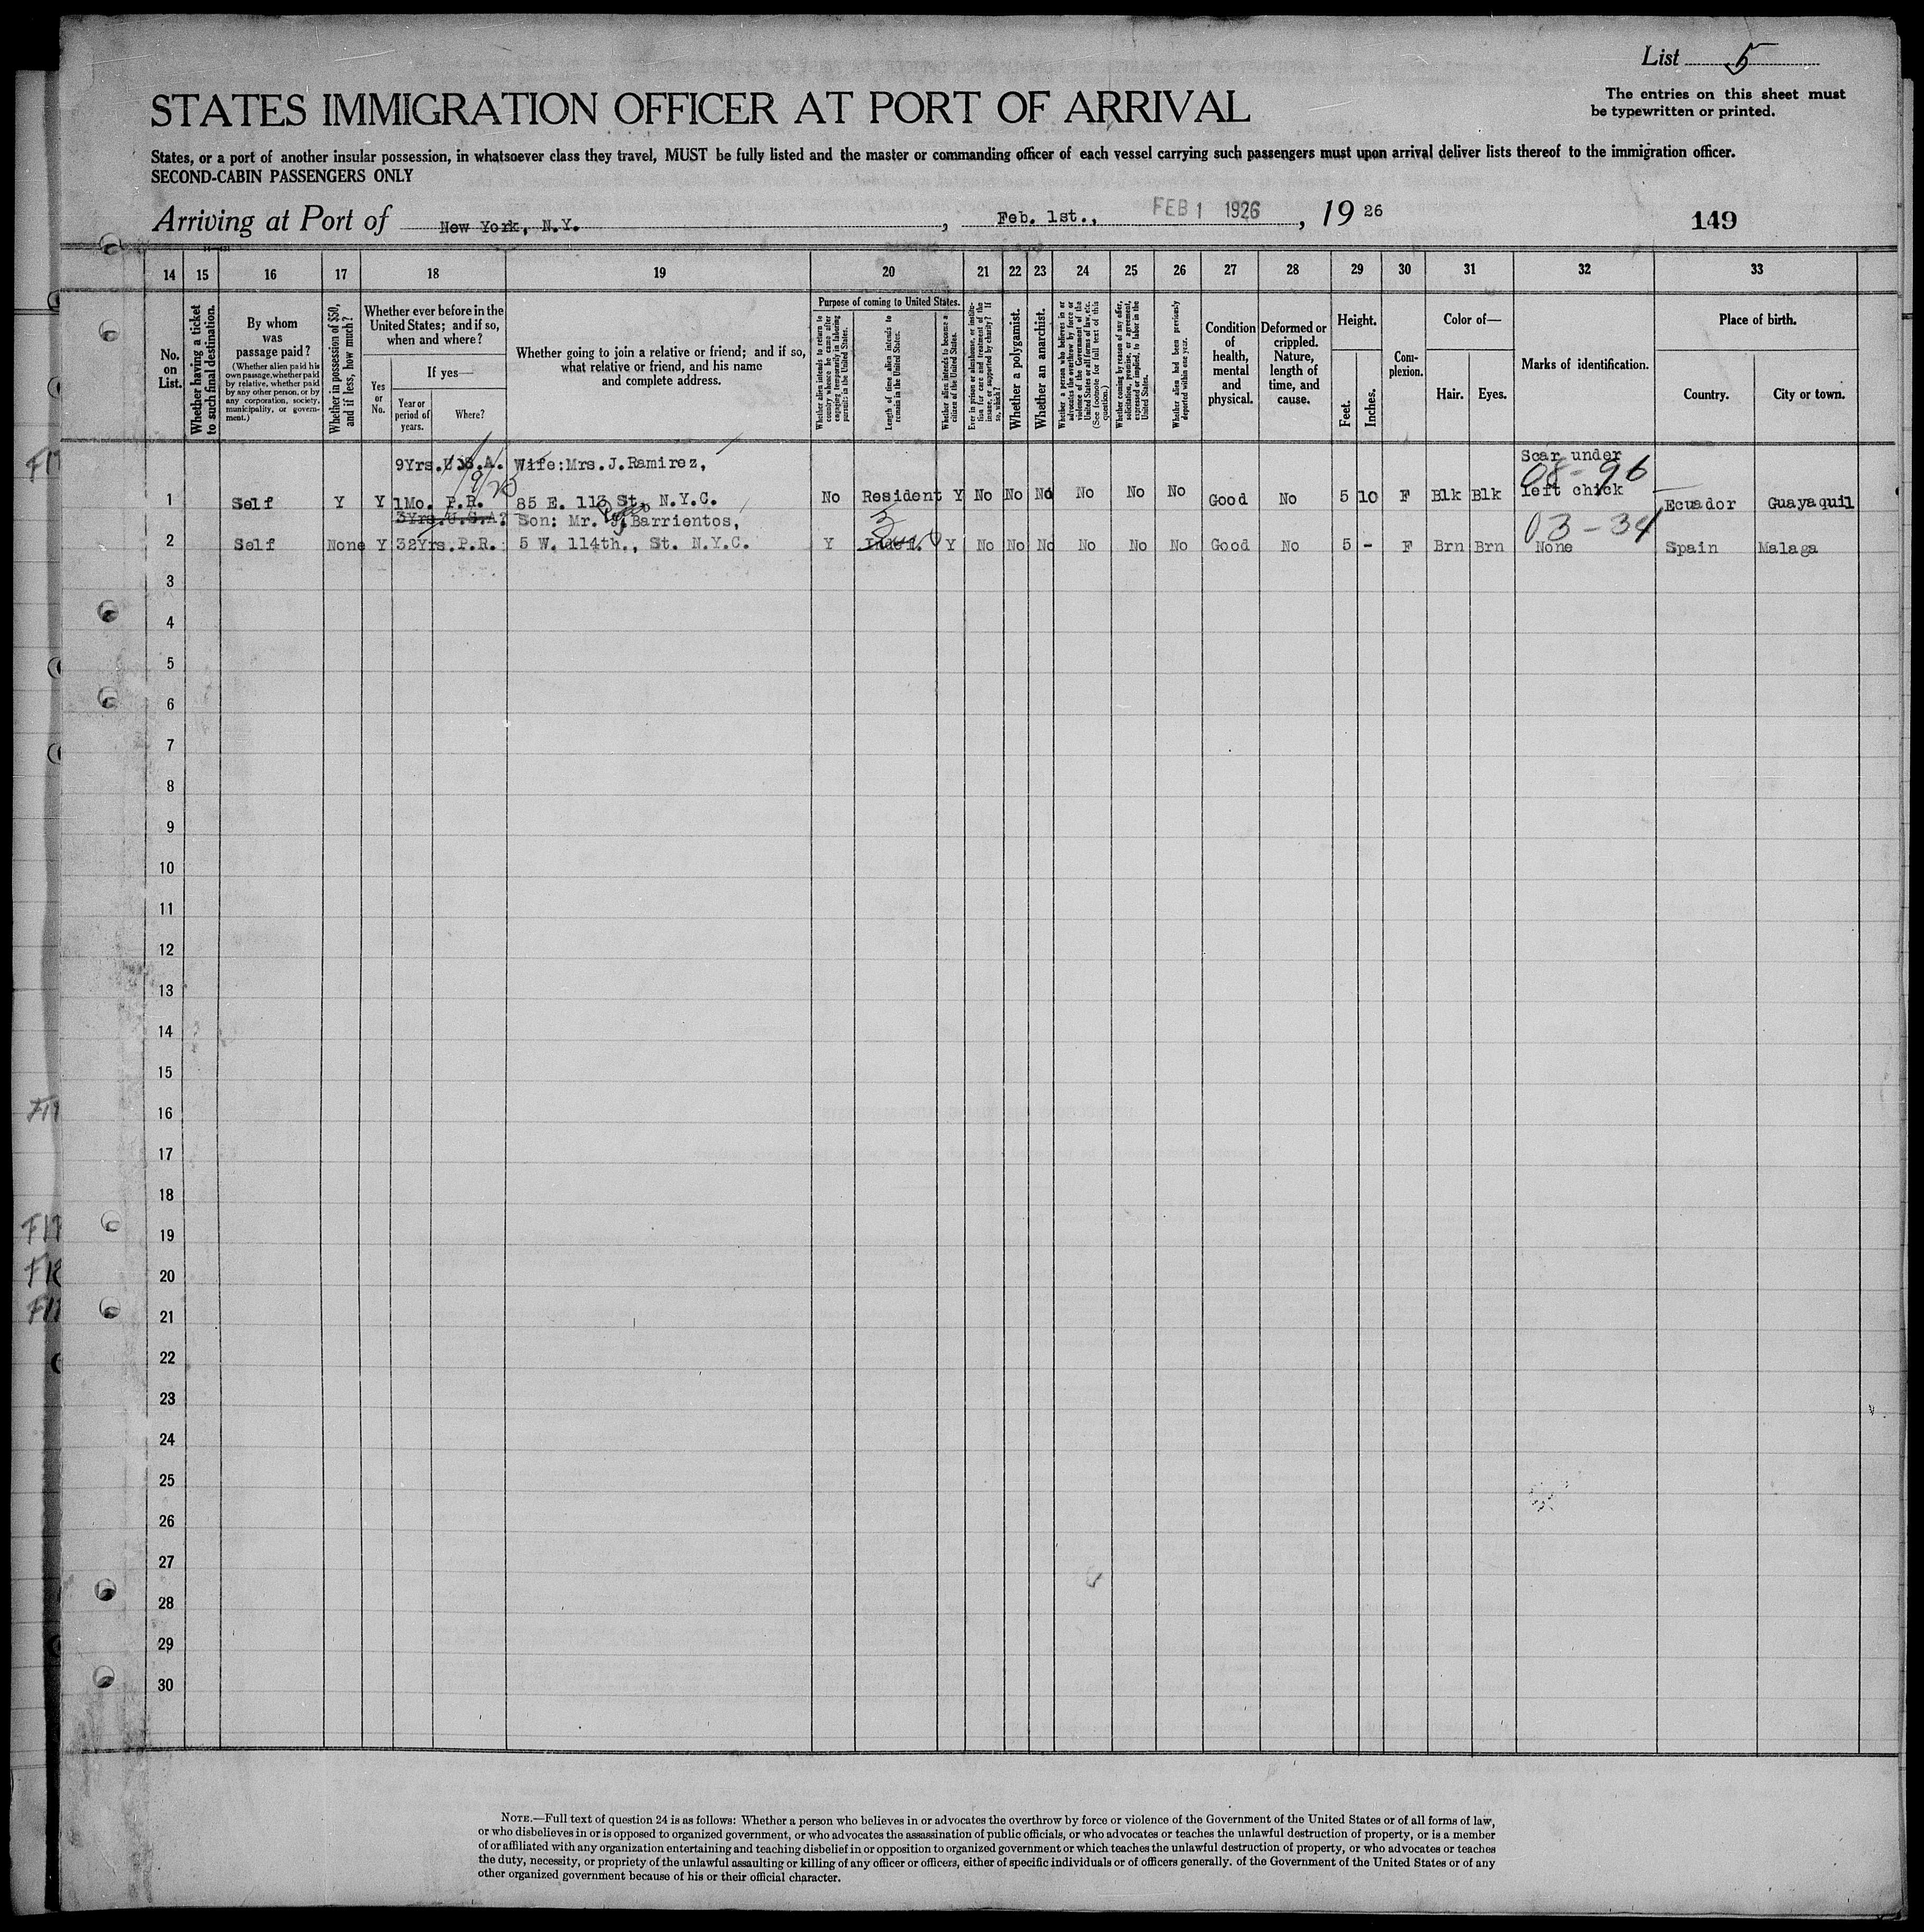 List 5
The entries on this sheet must
be typewritten or printed.
STATES IMMIGRATION OFFICER AT PORT OF ARRIVAL
States, or a port of another insular possession, in whatsoever class they travel, MUST be fully listed and the master or commanding officer of each vessel carrying such passengers must upon arrival deliver lists thereof to the immigration officer.
SECOND-CABIN PASSENGERS ONLY
Arriving at Port of New York, N.Y., Feb. 1st., FEB 1 1926, 19 26
149
14 15 16 17 18 19 20 21 22 23 24 25 26 27 28 29 30 31 32 33
No. on List.
Whether having a ticket to such final destination.
By whom was passage paid?
(Whether alien paid his own passage, whether paid by relative, whether paid by any other person, or by any corporation, society, municipality, or government.)
Whether in possession of $50, and if less, how much?
Whether ever before in the United States; and if so, when and where?
Yes or No.
If yes—
Year or period of years.
Where?
Whether going to join a relative or friend; and if so, what relative or friend, and his name and complete address.
Purpose of coming to United States.
Whether alien intends to return to country whence he came after engaging temporarily in laboring pursuits in the United States.
Length of time alien intends to remain in the United States.
Whether alien intends to become a citizen of the United States.
Ever in prison or almshouse, or institution for care and treatment of the insane, or supported by charity? If so, which?
Whether a polygamist.
Whether an anarchist.
Whether a person who believes in or advocates the overthrow by force or violence of the Government of the United States or all forms of law, etc. (See footnote for full text of this question.)
Whether coming by reason of any offer, solicitation, promise, or agreement, expressed or implied, to labor in the United States.
Whether alien had been previously deported within one year.
Condition of health, mental and physical.
Deformed or crippled. Nature, length of time, and cause.
Height.
Feet.
Inches.
Complexion.
Color of—
Hair.
Eyes.
Marks of identification.
Place of birth.
Country.
City or town.
9Yrs. U.S.A. Wife: Mrs. J. Ramirez, Scar under
08-96
1 Self Y Y 1Mo. P.R. 85 E. 113 St. N.Y.C. No Resident Y No No No No No No Good No 5 10 F Blk Blk left chick Ecuador Guayaquil
3Yrs. U.S.A? Son: Mr. J. Barrientos, 3 03-34
2 Self None Y 32Yrs. P.R. 5 W. 114th., St. N.Y.C. Y Indef. Y No No No No No No Good No 5 - F Brn Brn None Spain Malaga
3
4
5
6
7
8
9
10
11
12
13
14
15
16
17
18
19
20
21
22
23
24
25
26
27
28
29
30
NOTE.—Full text of question 24 is as follows: Whether a person who believes in or advocates the overthrow by force or violence of the Government of the United States or of all forms of law,
or who disbelieves in or is opposed to organized government, or who advocates the assassination of public officials, or who advocates or teaches the unlawful destruction of property, or is a member
of or affiliated with any organization entertaining and teaching disbelief in or opposition to organized government or which teaches the unlawful destruction of property, or who advocates or teaches
the duty, necessity, or propriety of the unlawful assaulting or killing of any officer or officers, either of specific individuals or of officers generally. of the Government of the United States or of any
other organized government because of his or their official character.